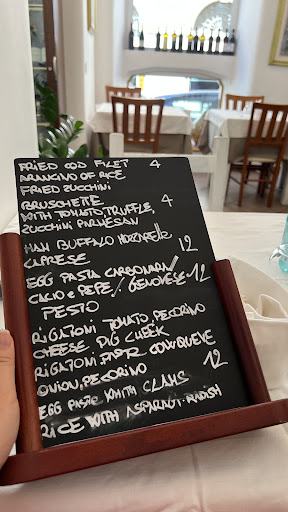 FRIED COD FILET 4
ARANCINO OF RICE
FRIED ZUCCHINI
BRUSCHETTE 4
WITH TOMATO, TRUFFLE,
ZUCCHINI PARMESAN
HAM BUFFALO MOZZARELLA
CAPRESE 12
EGG PASTA CARBONARA/
CACIO e PEPE/ GENOVESE 12
PESTO
RIGATONI TOMATO, PECORINO
CHEESE PIG CHEEK
RIGATONI
ONION, PECORINO 12
EGG PASTA WITH CLAMS
RICE WITH ASPARAGI-RADISH